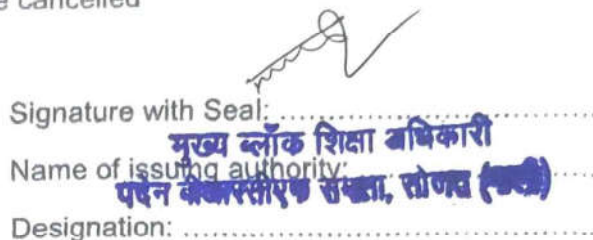 be cancelled
Signature with Seal: ................................
मुख्य ब्लॉक शिक्षा अधिकारी
Name of issuing authority: ................................
पदेन बीआरसीएफ समसा, सोजत (पाली)
Designation: ................................